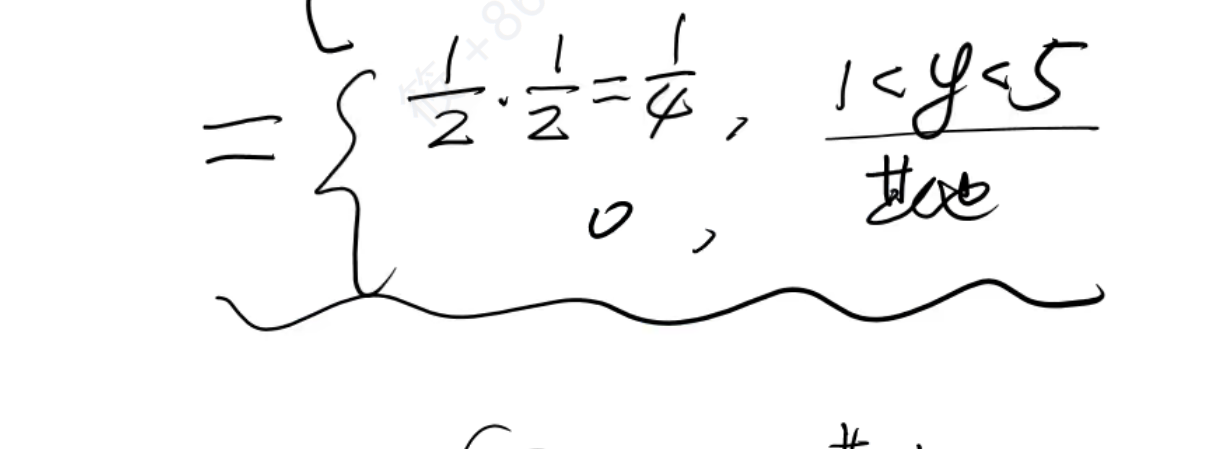 = { 1/2 · 1/2 = 1/4 , 1 < y < 5
0 , 其他